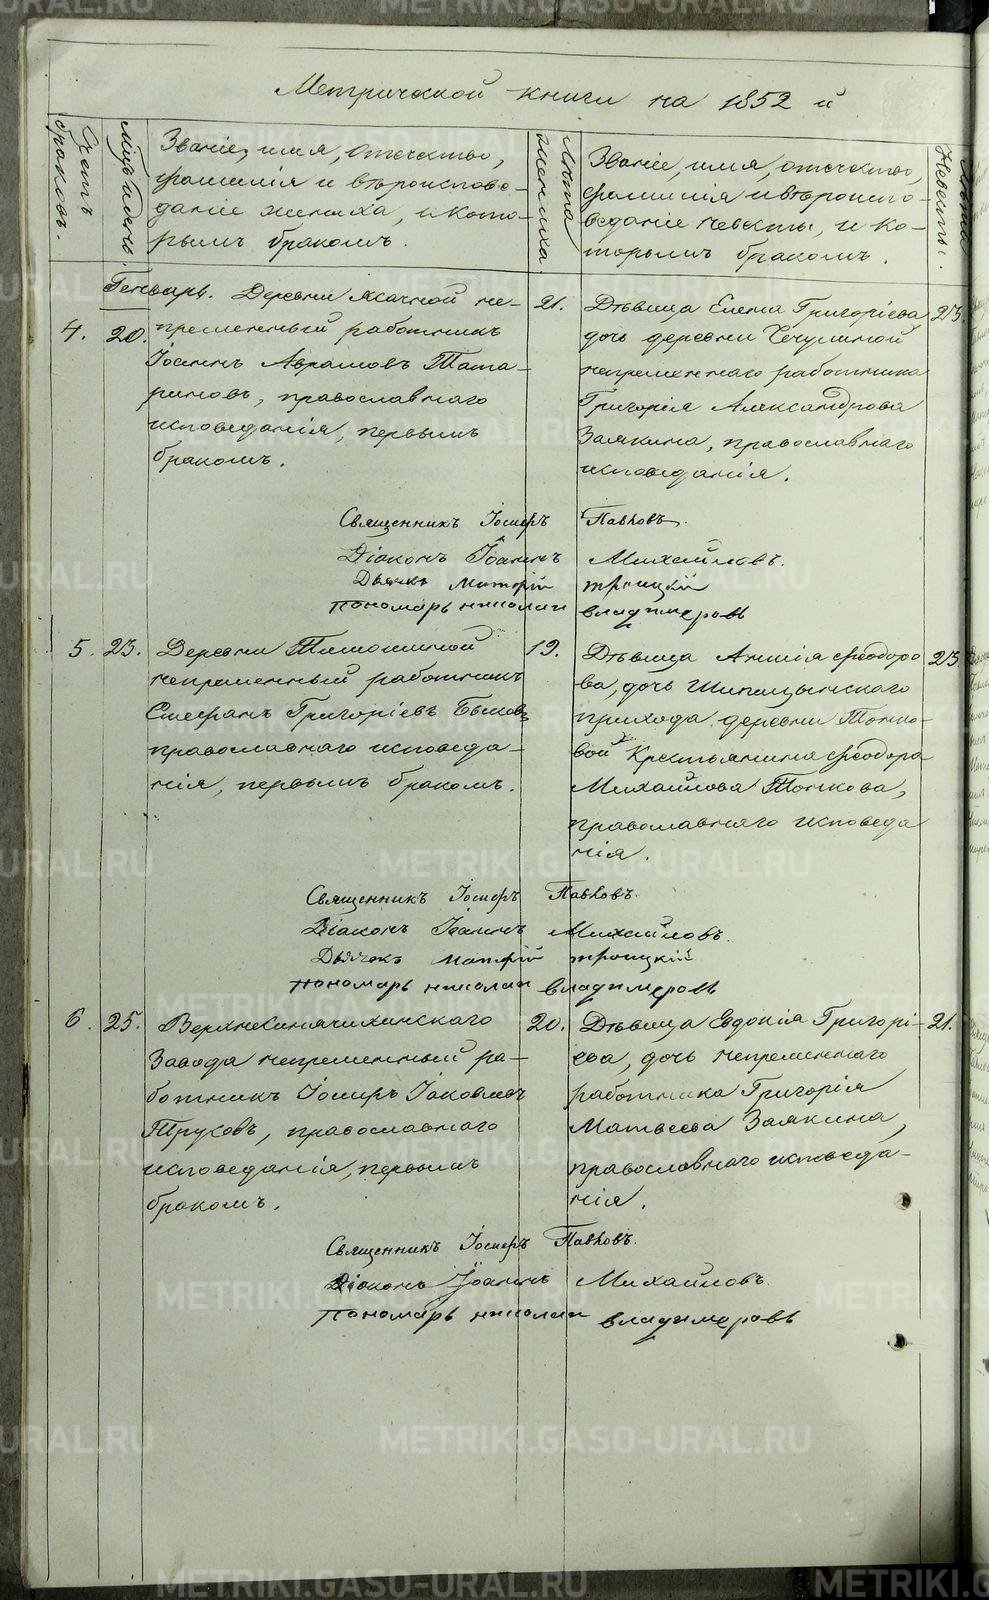 Метрической книги на 1852 й
Счетъ браковъ.
Мѣсяцъ и день.
Званіе, имя, отечество,
фамилія и вѣроиспове-
даніе жениха, и кото-
рымъ бракомъ.
Лѣта жениха.
Званіе, имя, отечество,
фамилія и вѣроиспо-
веданіе невѣсты, и ко-
торымъ бракомъ.
Лѣта Невѣсты.
Генварь. Деревни Ясачной не-
4. 20. пременный работникъ
Іоаннъ Аврамовъ Тата-
риновъ, православнаго
исповеданія, первымъ
бракомъ.
21.
Дѣвица Елена Григоріева
дочь деревни Чечулиной
непременнаго работника
Григорія Александрова
Заякина, православнаго
исповеданія.
23.
Священникъ Іосифъ Павловъ.
Діаконъ Іоаннъ Михайловъ.
Дьячекъ Матфій Троицкій
Пономарь Николай Владимеровъ
5. 23. Деревни Томошиной
непременный работникъ
Стефанъ Григоріевъ Быковъ
православнаго исповеда-
нія, первымъ бракомъ.
19.
Дѣвица Аннія Феодоро-
ва, дочь Шипицынскаго
прихода деревни Тонко-
вой Крестьянина Феодора
Михайлова Тонкова,
православнаго исповеда
нія.
23
Священникъ Іосифъ Павловъ.
Діаконъ Іоаннъ Михайловъ.
Дьячекъ Матфій Троицкій
Пономарь Николай Владимеровъ
6. 25. Верхнесинячихинскаго
Завода непременный ра-
ботникъ Іосифъ Іаковлевъ
Труховъ, православнаго
исповеданія, первымъ
бракомъ.
20.
Дѣвица Евдокія Григорі-
ева, дочь непременнаго
работника Григорія
Матвеева Заякина,
православнаго исповеда-
нія.
21.
Священникъ Іосифъ Павловъ.
Діаконъ Іоаннъ Михайловъ
Пономарь Николай Владимеровъ
METRIKI.GASO-URAL.RU